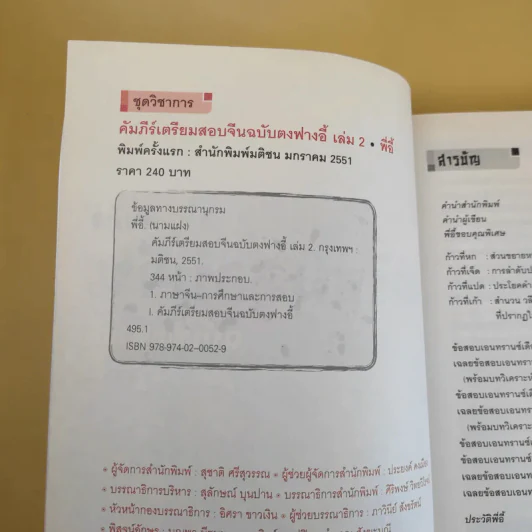 ชุดวิชาการ
คัมภีร์เตรียมสอบจีนฉบับตงฟางอี้ เล่ม 2 • พี่อี้
พิมพ์ครั้งแรก : สำนักพิมพ์มติชน มกราคม 2551
ราคา 240 บาท
ข้อมูลทางบรรณานุกรม
พี่อี้. (นามแฝง)
คัมภีร์เตรียมสอบจีนฉบับตงฟางอี้ เล่ม 2. กรุงเทพฯ :
มติชน, 2551.
344 หน้า : ภาพประกอบ.
1. ภาษาจีน–การศึกษาและการสอบ
I. คัมภีร์เตรียมสอบจีนฉบับตงฟางอี้
495.1
ISBN 978-974-02-0052-9
* ผู้จัดการสำนักพิมพ์ : สุชาติ ศรีสุวรรณ * ผู้ช่วยผู้จัดการสำนักพิมพ์ : ประยงค์
* บรรณาธิการบริหาร : สุลักษณ์ บุนปาน * บรรณาธิการสำนักพิมพ์ : ศิริพงษ์
* หัวหน้ากองบรรณาธิการ : อิศรา ขาวเงิน * ผู้ช่วยบรรณาธิการ : ภาวินีย์ สังขรัตน์
* พิสูจน์อักษร :
สารบัญ
คำนำสำนักพิมพ์
คำนำผู้เขียน
พี่อี้ขอบคุณพิเศษ
ก้าวที่หก : ส่วนขยายห
ก้าวที่เจ็ด : การลำดับป
ก้าวที่แปด : ประโยคคำ
ก้าวที่เก้า : สำนวน วลี
ที่ปรากฏใ
ข้อสอบเอนทรานซ์เดื
เฉลยข้อสอบเอนทรา
(พร้อมบทวิเคราะห์
ข้อสอบเอนทรานซ์เดื
เฉลยข้อสอบเอนทรา
(พร้อมบทวิเคราะ
ข้อสอบเอนทรานซ์เ
ข้อสอบเอนทรานซ์
เฉลยข้อสอบเอนท
เฉลยข้อสอบเอนท
ประวัติพี่อี้